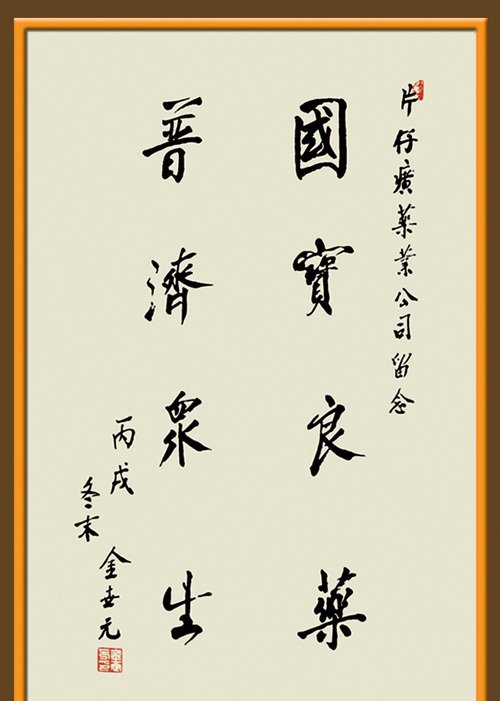 片仔癀藥業公司留念
國寶良藥
普濟眾生
丙戌
冬末
金世元